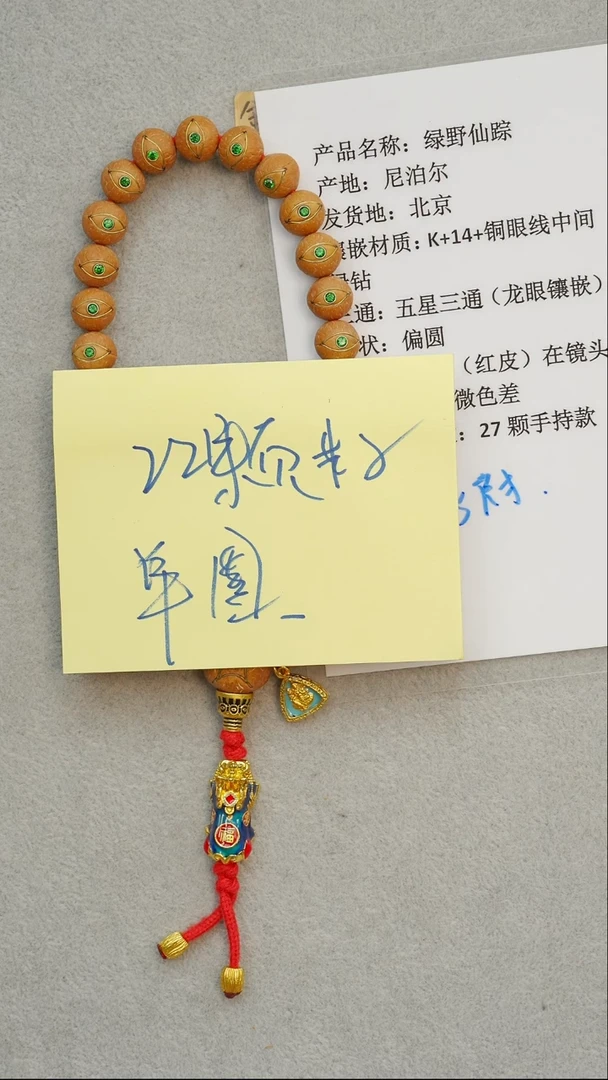 产品名称：绿野仙踪
产地：尼泊尔
发货地：北京
镶嵌材质：K+14+铜眼线中间
钻
通：五星三通（龙眼镶嵌）
状：偏圆
（红皮）在镜头
微色差
：27 颗手持款
财.
22颗
单圈
福